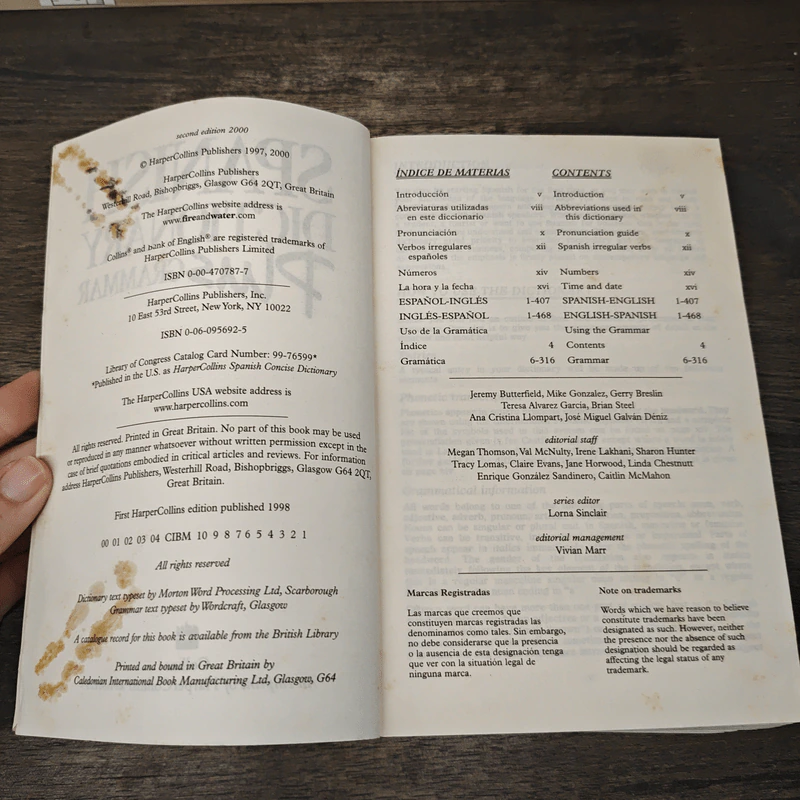 second edition 2000
© HarperCollins Publishers 1997, 2000
HarperCollins Publishers
Westerhill Road, Bishopbriggs, Glasgow G64 2QT, Great Britain
The HarperCollins website address is
www.fireandwater.com
Collins® and bank of English® are registered trademarks of
HarperCollins Publishers Limited
ISBN 0-00-470787-7
HarperCollins Publishers, Inc.
10 East 53rd Street, New York, NY 10022
ISBN 0-06-095692-5
Library of Congress Catalog Card Number: 99-76599*
*Published in the U.S. as HarperCollins Spanish Concise Dictionary
The HarperCollins USA website address is
www.harpercollins.com
All rights reserved. Printed in Great Britain. No part of this book may be used
or reproduced in any manner whatsoever without written permission except in the
case of brief quotations embodied in critical articles and reviews. For information
address HarperCollins Publishers, Westerhill Road, Bishopbriggs, Glasgow G64 2QT,
Great Britain.
First HarperCollins edition published 1998
00 01 02 03 04 CIBM 10 9 8 7 6 5 4 3 2 1
All rights reserved
Dictionary text typeset by Morton Word Processing Ltd, Scarborough
Grammar text typeset by Wordcraft, Glasgow
A catalogue record for this book is available from the British Library
Printed and bound in Great Britain by
Caledonian International Book Manufacturing Ltd, Glasgow, G64
ÍNDICE DE MATERIAS
Introducción v
Abreviaturas utilizadas viii
en este diccionario
Pronunciación x
Verbos irregulares xii
españoles
Números xiv
La hora y la fecha xvi
ESPAÑOL-INGLÉS 1-407
INGLÉS-ESPAÑOL 1-468
Uso de la Gramática
Índice 4
Gramática 6-316
CONTENTS
Introduction v
Abbreviations used in viii
this dictionary
Pronunciation guide x
Spanish irregular verbs xii
Numbers xiv
Time and date xvi
SPANISH-ENGLISH 1-407
ENGLISH-SPANISH 1-468
Using the Grammar
Contents 4
Grammar 6-316
Jeremy Butterfield, Mike Gonzalez, Gerry Breslin
Teresa Alvarez Garcia, Brian Steel
Ana Cristina Llompart, José Miguel Galván Déniz
editorial staff
Megan Thomson, Val McNulty, Irene Lakhani, Sharon Hunter
Tracy Lomas, Claire Evans, Jane Horwood, Linda Chestnutt
Enrique González Sandinero, Caitlin McMahon
series editor
Lorna Sinclair
editorial management
Vivian Marr
Marcas Registradas
Las marcas que creemos que
constituyen marcas registradas las
denominamos como tales. Sin embargo,
no debe considerarse que la presencia
o la ausencia de esta designación tenga
que ver con la situación legal de
ninguna marca.
Note on trademarks
Words which we have reason to believe
constitute trademarks have been
designated as such. However, neither
the presence nor the absence of such
designation should be regarded as
affecting the legal status of any
trademark.